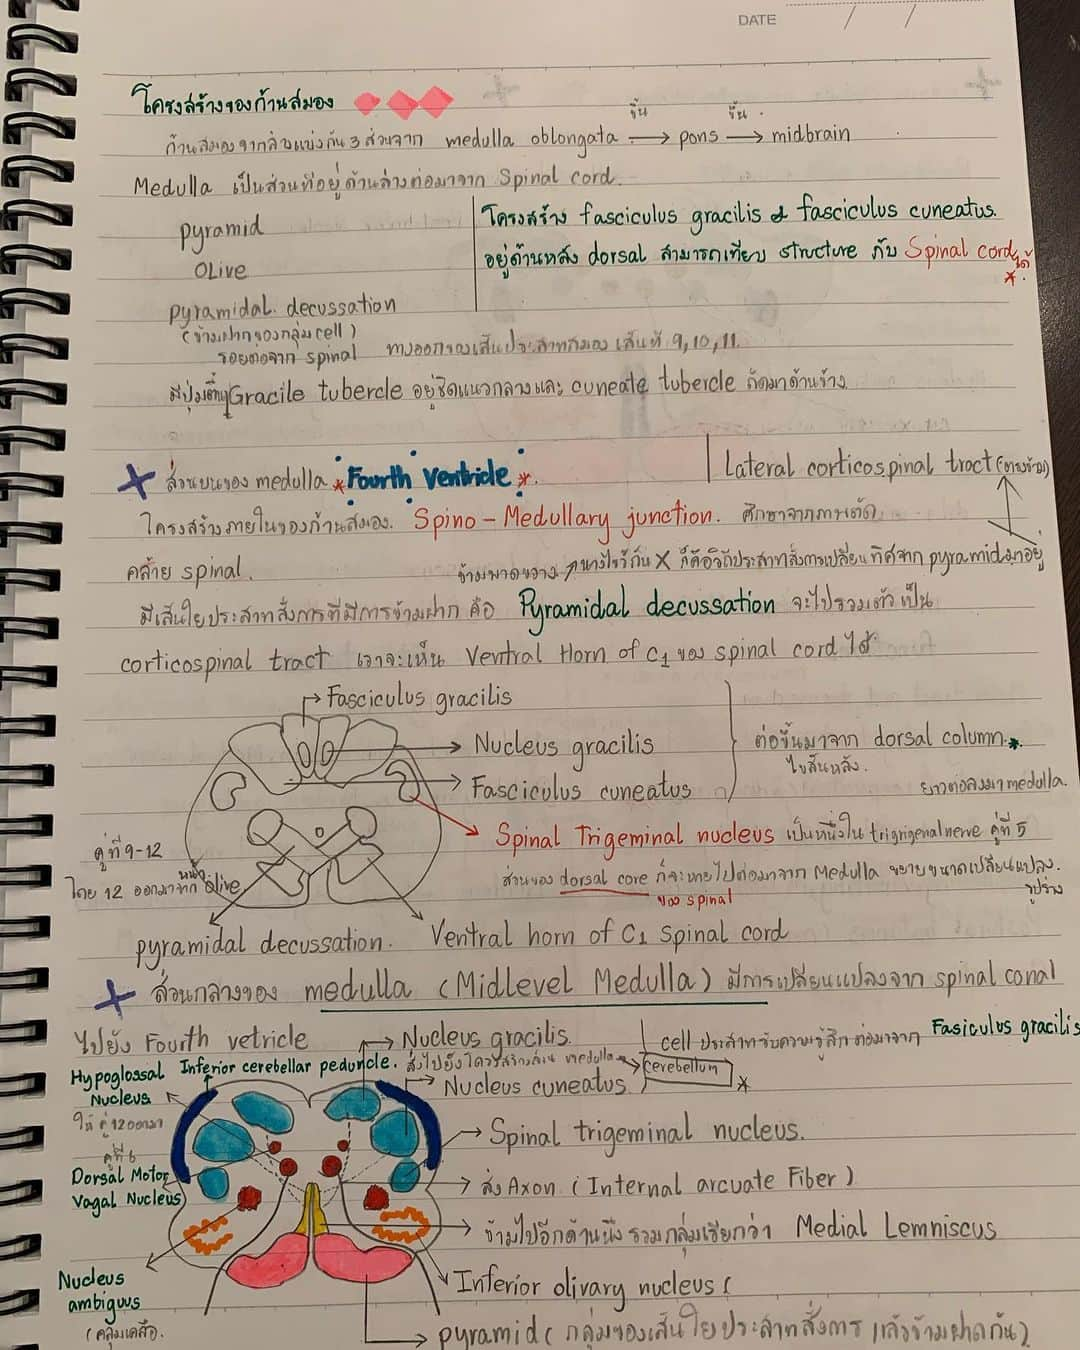 DATE / /
โครงสร้างของก้านสมอง
ก้านสมองจากล่างแบ่งกัน 3 ส่วนจาก medulla oblongata ขึ้น → pons ขึ้น → midbrain
Medulla เป็นส่วนที่อยู่ด้านล่างต่อมาจาก Spinal cord.
pyramid
Olive
pyramidal decussation
(ข้างฝากของกลุ่ม cell)
รอยต่อจาก spinal ทางออกของเส้นประสาทสมอง เส้นที่ 9, 10, 11.
โครงสร้าง fasciculus gracilis & fasciculus cuneatus.
อยู่ด้านหลัง dorsal สามารถเทียบ structure กับ Spinal cord ได้ *
มีปุ่ม Gracile tubercle อยู่ชิดแนวกลางและ cuneate tubercle ถัดมาด้านข้าง
+ ส่วนบนของ medulla * Fourth Ventricle *
Lateral corticospinal tract
โครงสร้างภายในของก้านสมอง. Spino - Medullary junction. ศึกษาจากการตัด
คล้าย spinal. ข้ามพาดขวาง ↗ ทางไขว้กัน X ก็คือวิถีประสาทสั่งการเปลี่ยนทิศจาก pyramid มาอยู่
มีเส้นใยประสาทสั่งการที่มีการข้ามฝาก คือ Pyramidal decussation จะไปรวมตัวเป็น
corticospinal tract เราจะเห็น Ventral Horn of C1 ของ spinal cord ได้
Fasciculus gracilis
Nucleus gracilis
Fasciculus cuneatus
ต่อขึ้นมาจาก dorsal column *
ไขสันหลัง.
ยาวต่อลงมา medulla.
Spinal Trigeminal nucleus เป็นหนึ่งใน trigrigenal nerve คู่ที่ 5
ส่วนของ dorsal core ก็จะหายไปต่อมาจาก Medulla ขยายขนาดเปลี่ยนแปลง.
ของ spinal
รูปร่าง
คู่ที่ 9-12
โดย 12 ออกมาจาก หน้า olive
pyramidal decussation. Ventral horn of C1 spinal cord
+ ส่วนกลางของ medulla (Midlevel Medulla) มีการเปลี่ยนแปลงจาก spinal canal
ไปยัง Fourth vetricle
Nucleus gracilis.
cell ประสาทรับความรู้สึกต่อมาจาก Fasiculus gracilis
Hypoglossal Nucleus
Inferior cerebellar peduncle. ส่งไปยังโครงสร้างส่วน medulla → cerebellum *
Nucleus cuneatus
ให้ คู่ 12 ออกมา
คู่ที่ 6
Spinal trigeminal nucleus.
Dorsal Motor
Vagal Nucleus
ส่ง Axon (Internal arcuate Fiber)
ข้ามไปอีกด้านนึง รวมกลุ่มเรียกว่า Medial Lemniscus
Nucleus
ambiguus
Inferior olivary nucleus (
pyramid (กลุ่มของเส้นใยประสาทสั่งการ แล้วข้ามฝากกัน)